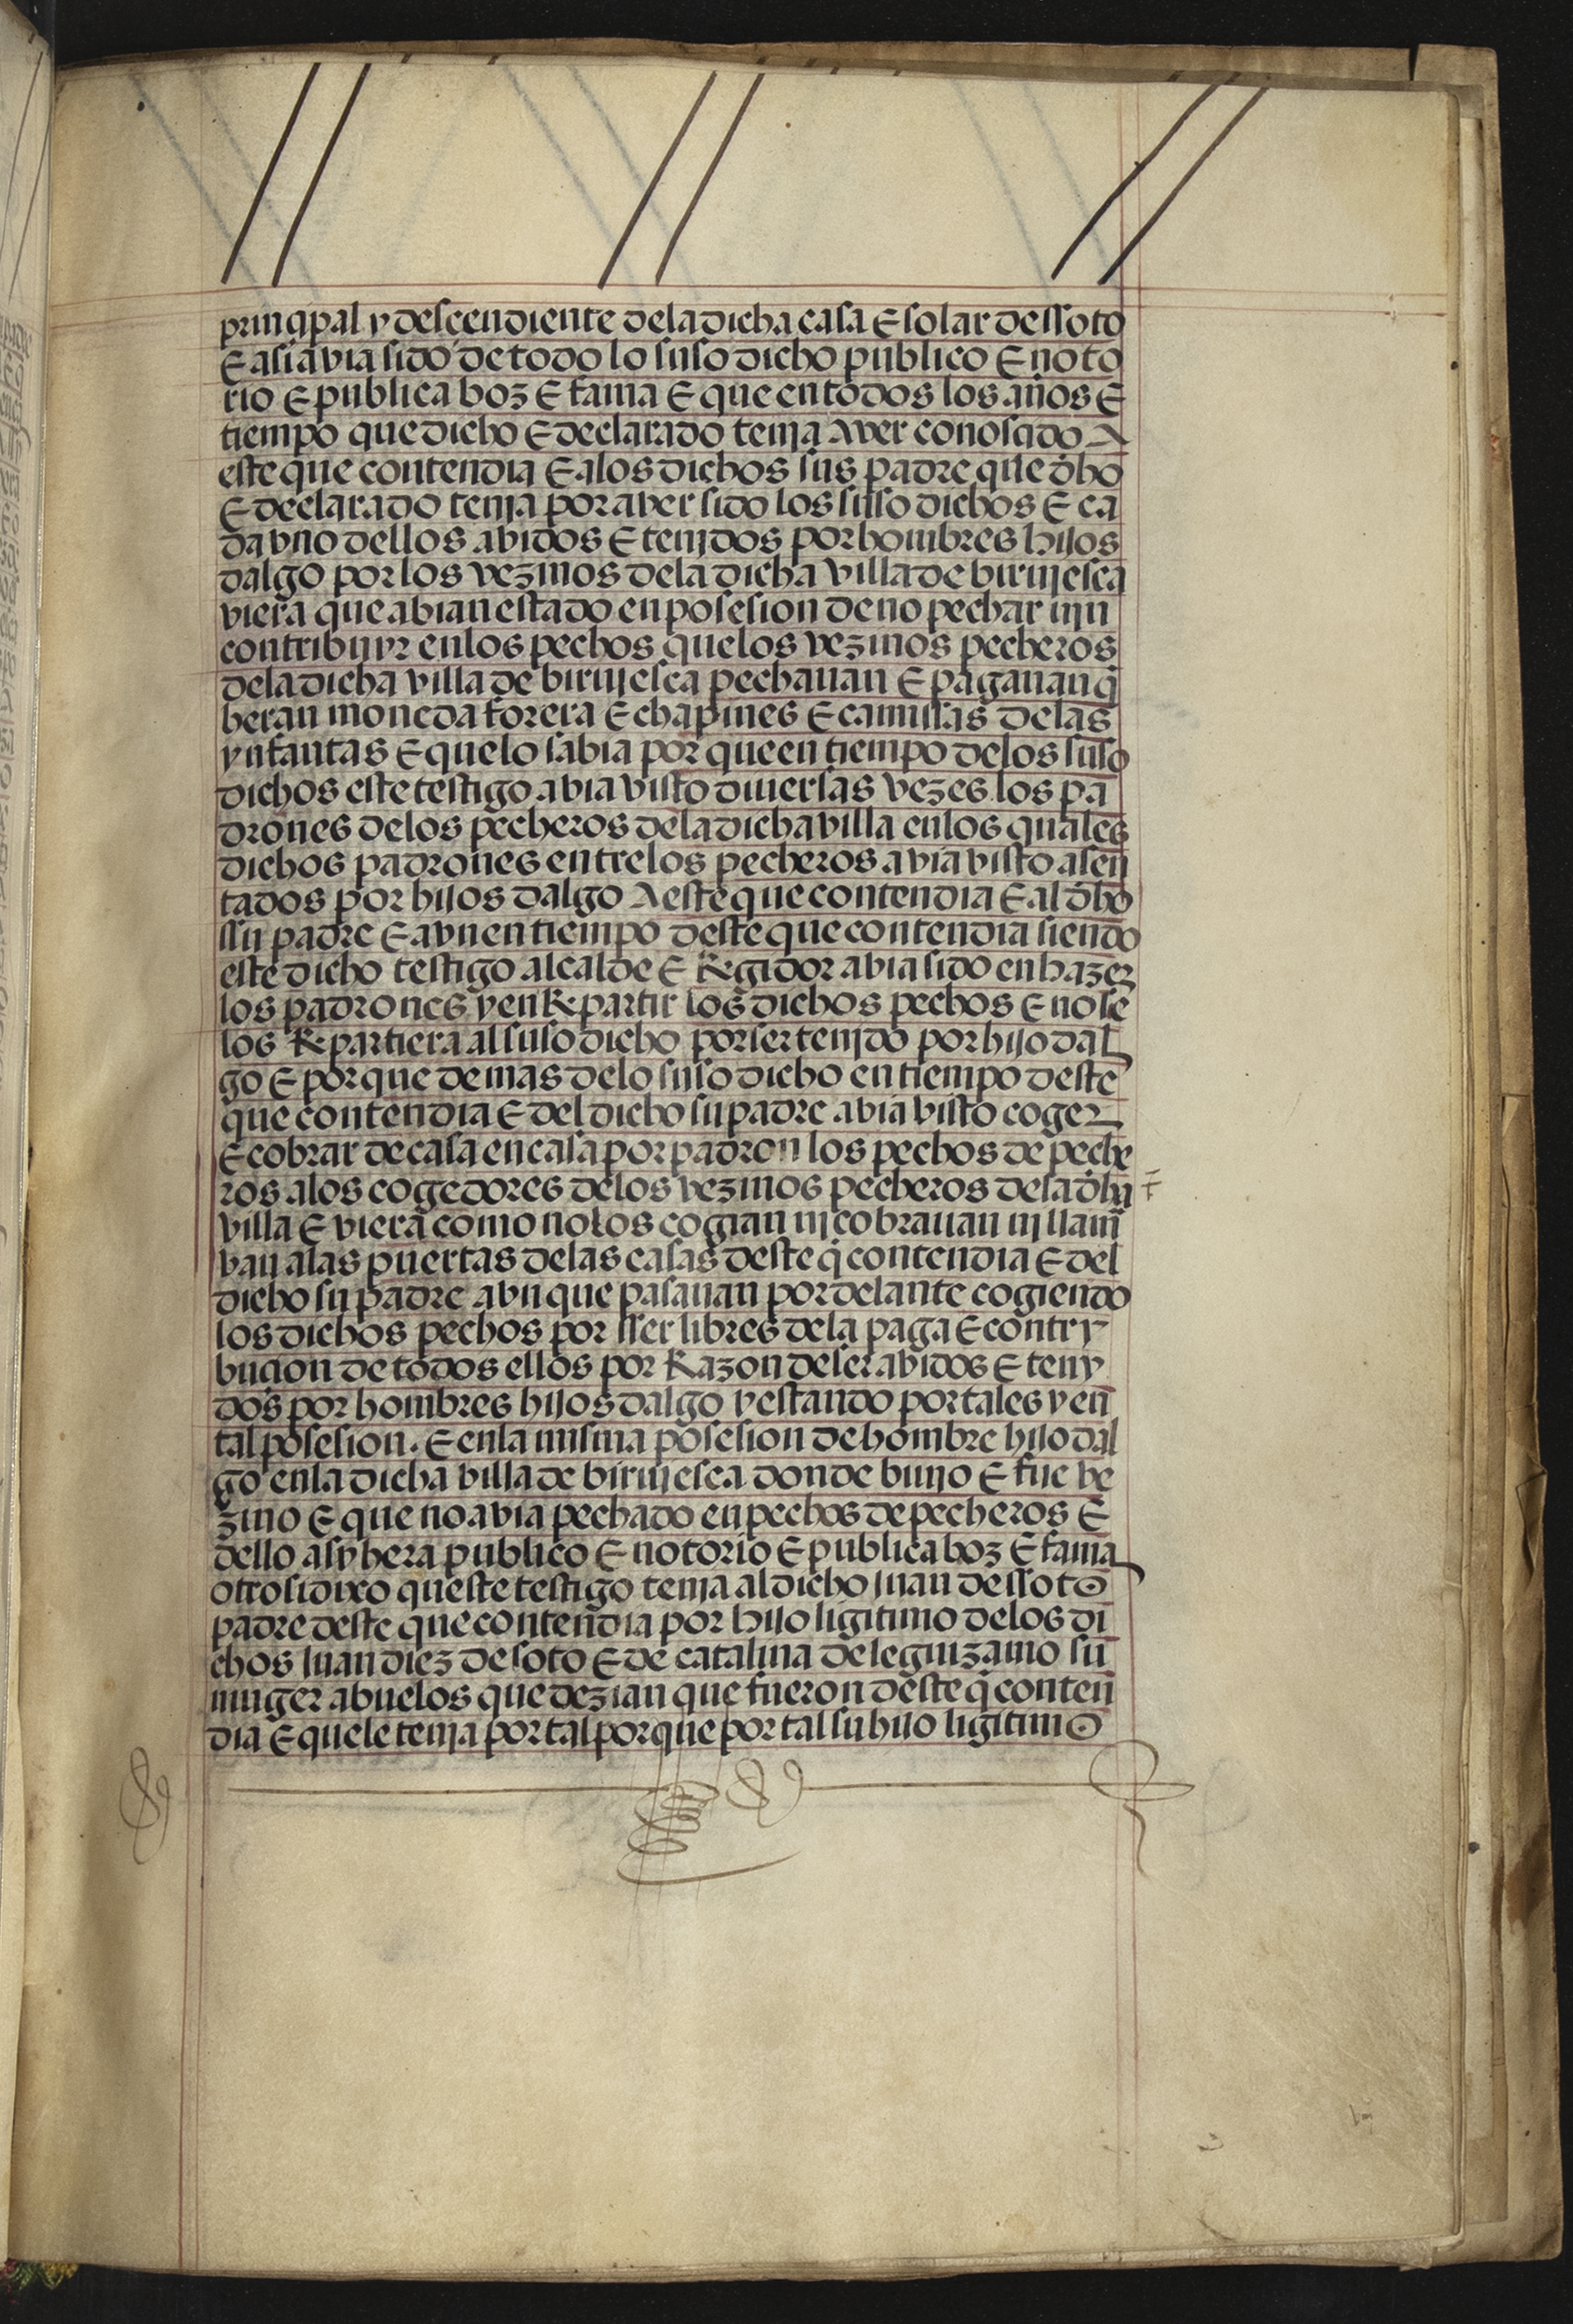 prinçipal y desçendiente dela dicha casa E solar de ssoto
E asi avia sido de todo lo suso dicho publico E noto
rio E publica boz E fama E que en todos los años E
tiempo que dicho E declarado tenja Aver conosçido A
este que contendia E alos dichos sus padre que dho
E declarado tenja por aver sido los suso dichos E ca
da vno dellos abidos E tenjdos por hombres hijos
dalgo por los vezinos dela dicha villa de birujesca
viera que abian estado en posesion de no pechar njn
contribuyr enlos pechos quelos vezinos pecheros
dela dicha villa de birujesca pechauan E pagauan q̃
heran moneda forera E chapines E camisas delas
ynfantas E quelo sabia por que en tiempo delos suso
dichos este testigo abia visto diuersas vezes los pa
drones delos pecheros dela dicha villa enlos quales
dichos padrones entrelos pecheros avia visto asen
tados por hijos dalgo A este que contendia E al dho
ssu padre E avn en tiempo deste que contendia siendo
este dicho testigo alcalde E Regidor abia sido en hazer
los padrones y en Repartir los dichos pechos E no se
los Repartiera al suso dicho por ser tenjdo por hijo dal
go E por que demas delo suso dicho en tiempo deste
que contendia E del dicho su padre abia visto coger
E cobrar de casa en casa por padron los pechos de peche
ros alos cogedores delos vezinos pecheros dela dha
villa E viera como no los cogian nj cobrauan nj llam
van alas puertas delas casas deste q̃ contendia E del
dicho su padre abn que pasauan por delante cogiendo
los dichos pechos por sser libres dela paga E contry
buçion de todos ellos por Razon de ser abidos E teny
dos por hombres hijos dalgo y estando por tales y en
tal posesion. E enla misma posesion de hombre hijo dal
go enla dicha villa de birujesca donde biujo E fue ve
zino E que no avia pechado en pechos de pecheros E
dello asy hera publico E notorio E publica boz E fama
otrosi dixo queste testigo tenja al dicho juan de ssoto
padre deste que contendia por hijo ligitimo delos di
chos juan diez de soto E de catalina de leguizamo su
muger abuelos que dezian que fueron deste q̃ conten
dia E quele tenja por tal porque por tal su hijo ligitimo